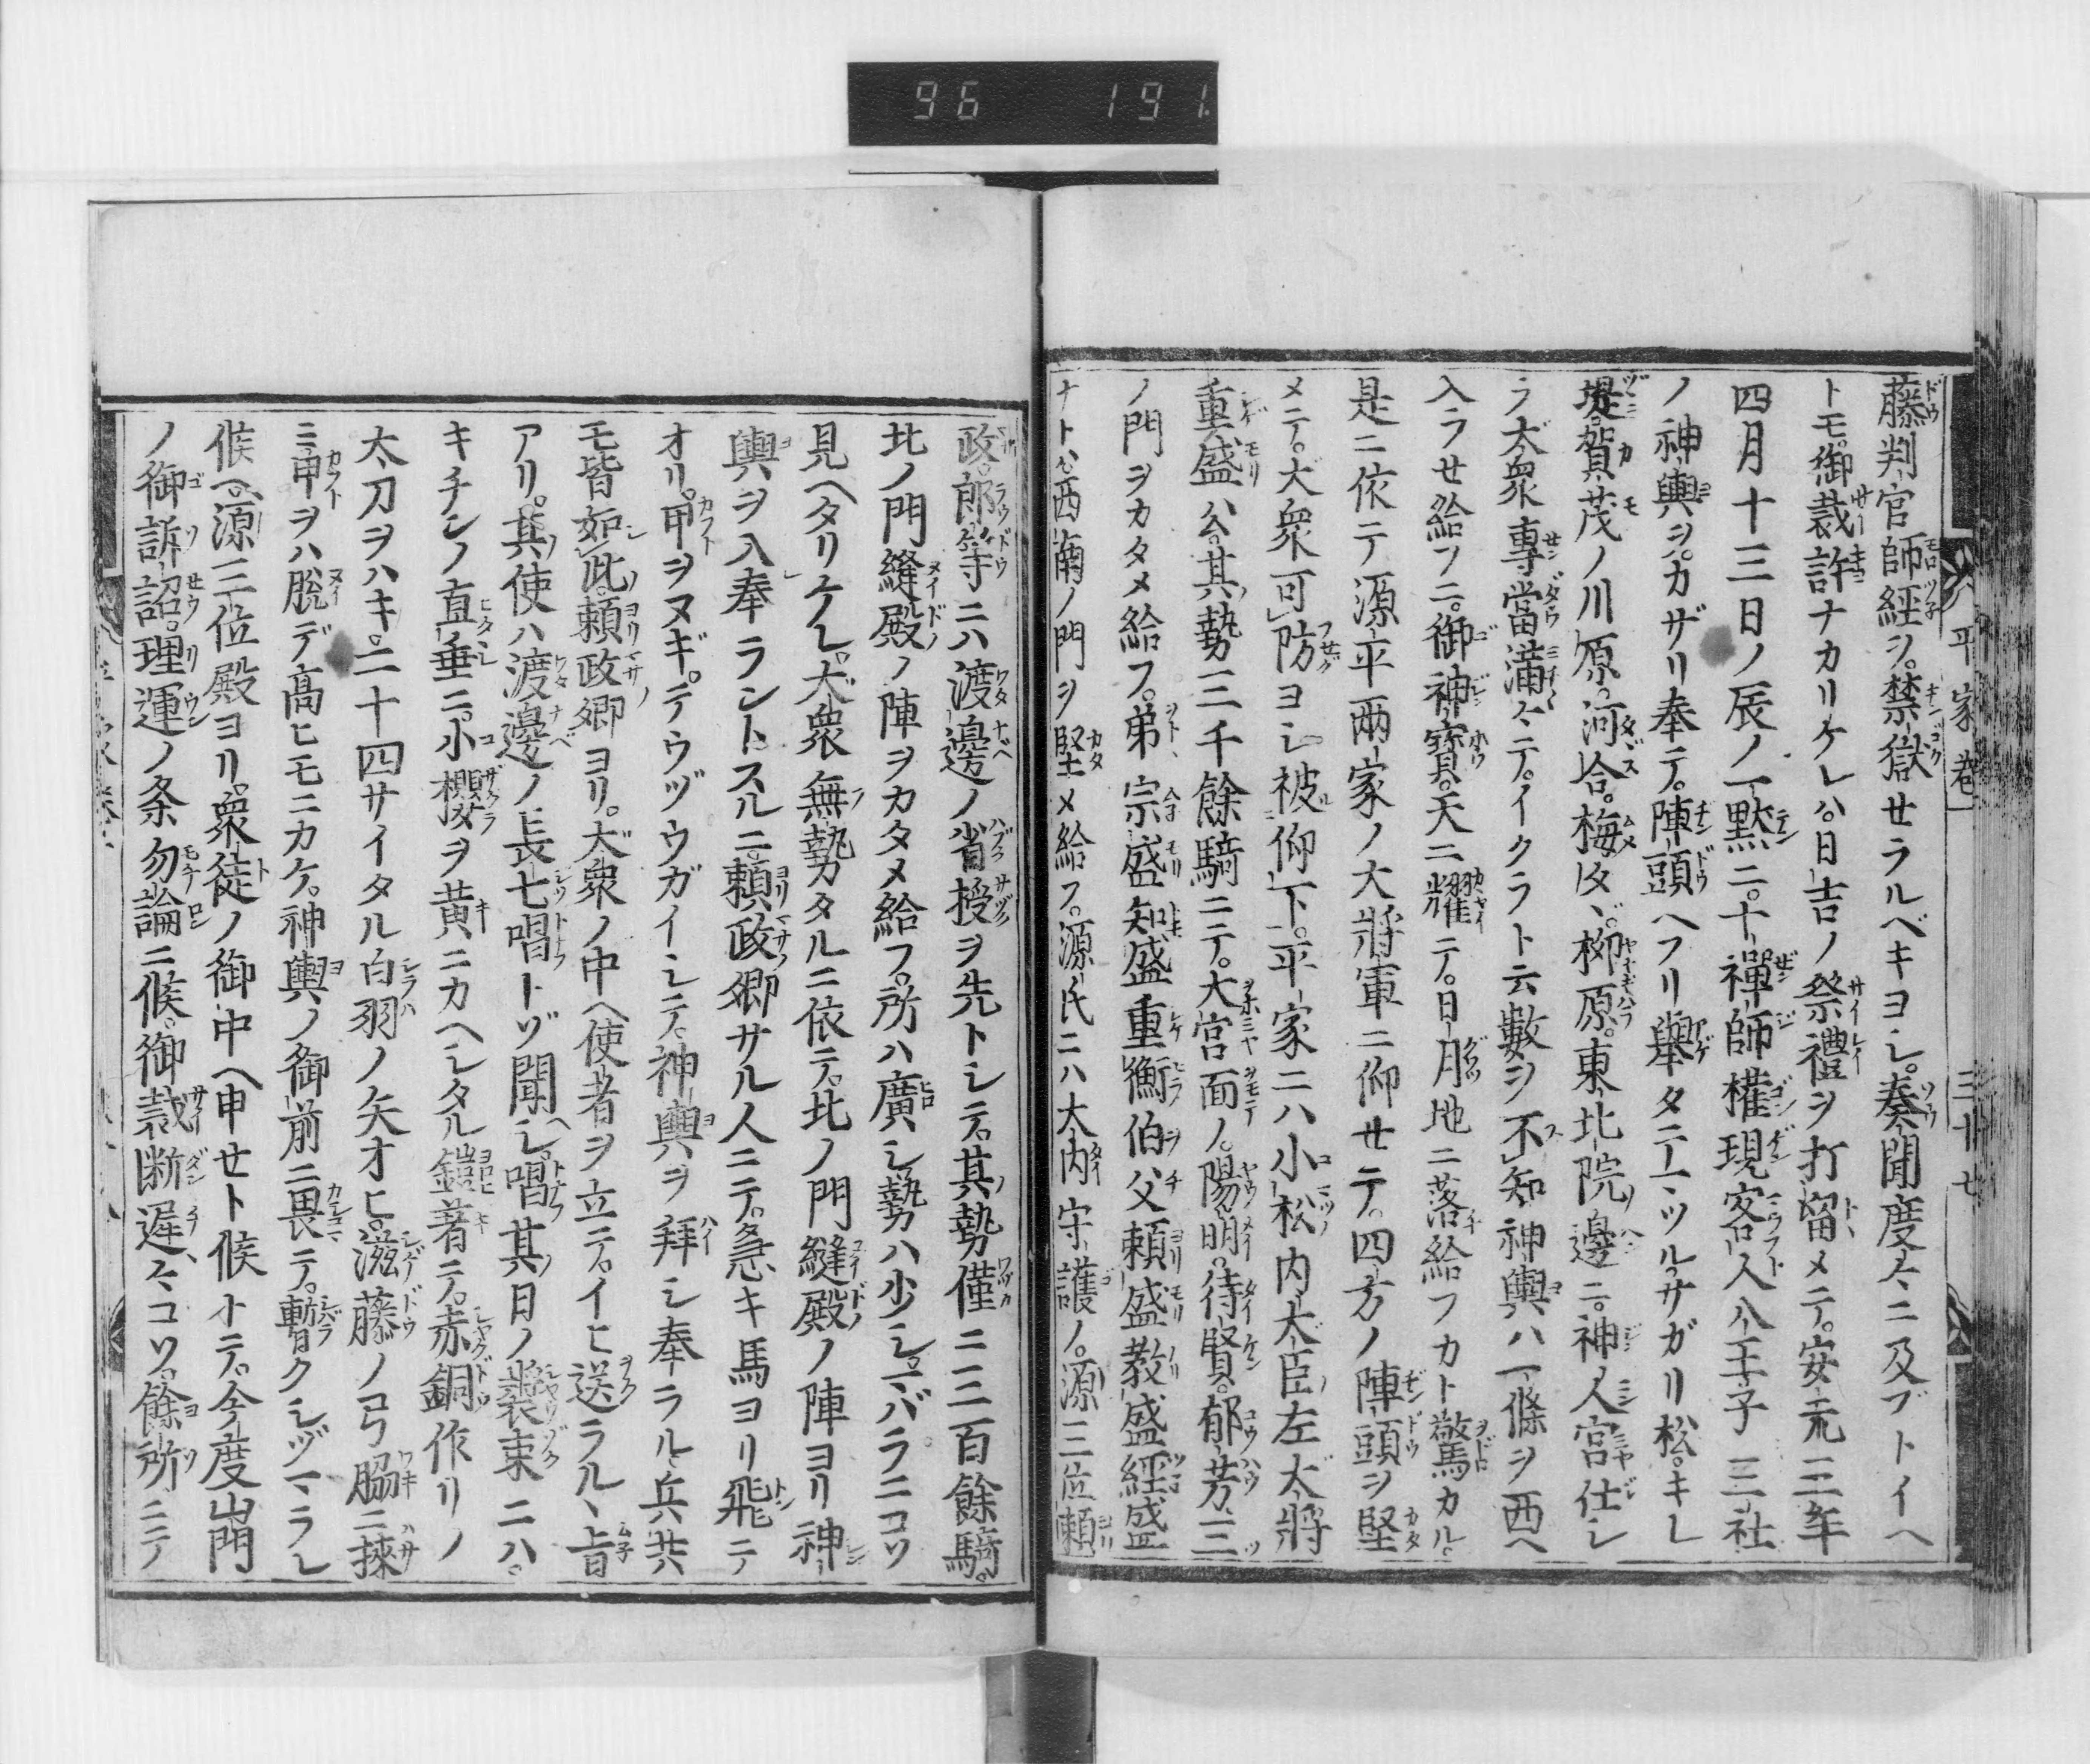 96 191.
平家巻一 三十七
藤判官師経ヲ。禁獄セラルベキヨシ。奏聞度々ニ及ブトイヘ
トモ。御裁許ナカリケレハ。日吉ノ祭禮ヲ打留メテ。安元三年
四月十三日ノ辰ノ一點ニ。十禪師権現客人八王子三社
ノ神輿ヲ。カザリ奉テ。陣頭ヘフリ擧タテマツル。サガリ松。キレ
堤。賀茂ノ川原。河合。梅タヾ。柳原。東北院邊ニ。神人宮仕シ
ラ大衆専當滿々テ。イクラト云數ヲ不知神輿ハ一條ヲ西ヘ
入ラせ給フニ。御神寳。天ニ耀テ。日月地ニ落給フカト驚カル。
是ニ依テ源平兩家ノ大將軍ニ仰せテ。四方ノ陣頭ヲ堅
メテ。大衆可防ヨシ被仰下。平家ニハ小松内大臣左大將
重盛公。其勢三千餘騎ニテ。大宮面ノ。陽明。待賢。郁芳。三
ノ門ヲカタメ給フ。弟宗盛知盛重衡伯父頼盛教盛経盛
ナトハ西南ノ門ヲ堅メ給フ。源氏ニハ大内守護ノ。源三位頼
政。郎等ニハ渡邊ノ省授ヲ先トシテ。其勢僅ニ三百餘騎。
北ノ門縫殿ノ陣ヲカタメ給フ。所ハ廣シ勢ハ少シ。マバラニコソ
見ヘタリケレ。大衆無勢タルニ依テ。北ノ門縫殿ノ陣ヨリ神
輿ヲ入奉ラントスルニ。頼政郷サル人ニテ。急キ馬ヨリ飛テ
オリ。甲ヲヌギ。テウヅウガイシテ。神輿ヲ拜シ奉ラル。兵共
モ皆如此。頼政郷ヨリ。大衆ノ中ヘ使者ヲ立テ。イヒ送ラルヽ旨
アリ。其使ハ渡邊ノ長七唱トゾ聞ヘシ。唱其日ノ裝束ニハ。
キチンノ直垂ニ。小櫻ヲ黄ニカヘシタル鎧著テ。赤銅作リノ
太刀ヲハキ。二十四サイタル白羽ノ矢オヒ。滋藤ノ弓脇ニ挾
ミ。甲ヲハ脱デ高ヒモニカケ。神輿ノ御前ニ畏テ。暫クシヅマラレ
候ヘ。源三位殿ヨリ。衆徒ノ御中ヘ申せト候トテ。今度山門
ノ御訴詔。理運ノ条勿論ニ候。御裁断遅々コソ。餘所ニテノ